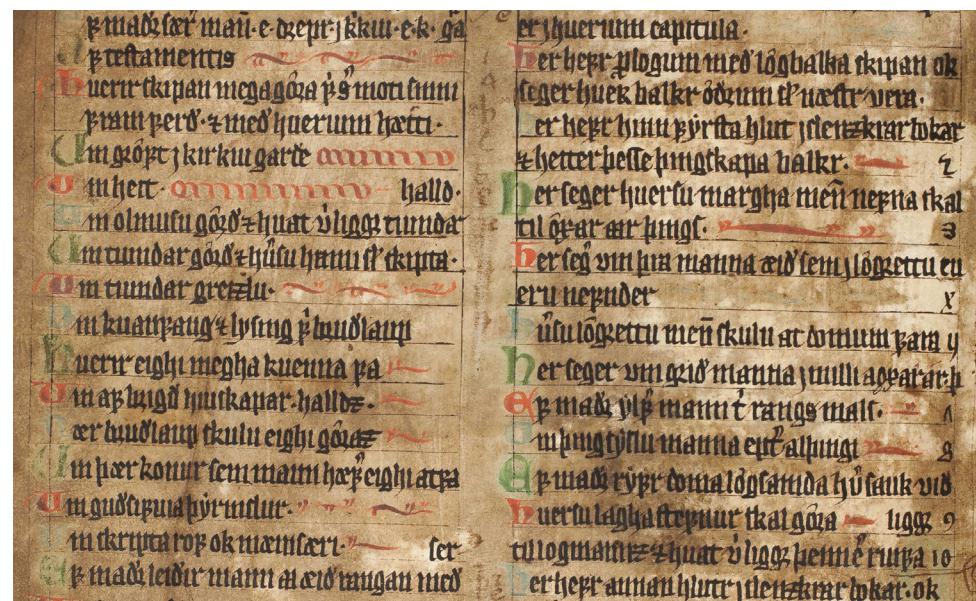 ꝼ maðꝛ sær mañ · e · dꝛepr · j kirkiu · e · k · ga
ꝼ testamentis
huerir skipan mega gǫ́ra
ꝼram ꝼerð · ⁊ með huerium hætti ·
Um grǫ́ꝼt j kirkiu garðe
Um heit · halld ·
Um olmusu gǫ́rð ⁊ huat við liggr tiundar
Um tiundar gǫ́rð ⁊ hu̓su henni sl̓ skipta ·
Um tiundar greizlu ·
Um kuanꝼaug ⁊ lysing ꝼ̓ bruðlaup
Huerir eighi megha kuenna ꝼa
Um aꝼ brigð hiuskapar · halldz ·
ær bruðlaup skulu eighi gǫ́raz
Um þær konur sem mann hæꝼ̓ eighi at ꝼa
Um guðsiꝼuia þyrmslur ·
Um skripta roꝼ ok mæinsæri · ser
Eꝼ maðꝛ leiðir mann at æið rangan með
er j huerium capitula ·
her heꝼr ꝼ logum með lǫ́gbalka skipan ok
seger huer balkr ǫ́ðrum sl̓ næstr vera ·
her heꝼr hinn ꝼyrsta hlut jslenzkrar bokar
⁊ heiter þesse þingskapa balkr · 2
Her seger huersu margha meñ neꝼna skal
til ǫ́xar ar þings · 3
her seg̓ vm þra manna æið sem j lǫ́grettu eu
eru neꝼnder
hu̓su lǫ́grettu meñ skulu at domum ꝼara
Her seger vm grið manna j milli
Eꝼ maðꝛ ylꝼ̓ manni t̓ rangs mals ·
Um þingsyslu manna ept̓ alþingi 8
Eꝼ maðꝛ ryꝼr doma lǫ́gsamda hu̓ sauk við
huersu lagha steꝼnur skal gǫ́ra liggr 9
til logmannz ⁊ huat við liggr þenne̓ riuꝼa 10
her heꝼr annan hlutt jslenzkrar bokar · ok